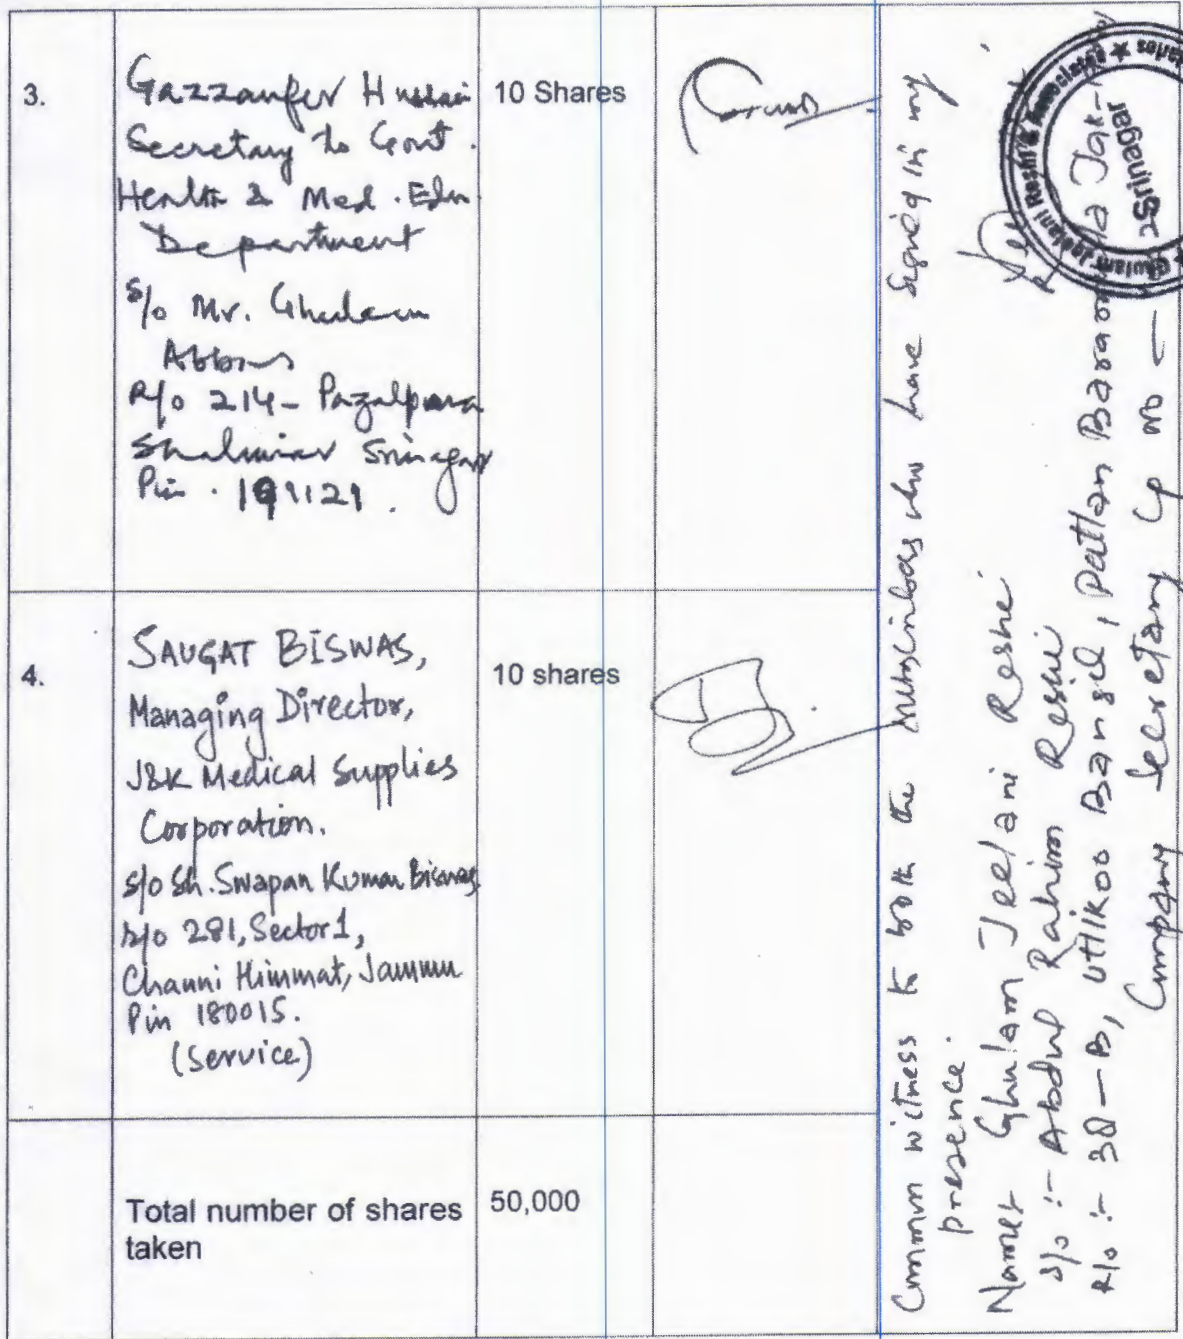 3.
Gazzanfer Hussain
Secretary to Govt.
Health & Med. Edu.
Department
S/o Mr. Ghulam
Abbas
R/o 214- Pazalpora
Shalimar Srinagar
Pin. 191121.
10 Shares
4.
SAUGAT BISWAS,
Managing Director,
J&K Medical Supplies
Corporation.
S/o Sh. Swapan Kumar Biswas
R/o 281, Sector 1,
Channi Himmat, Jammu
Pin 180015.
(Service)
10 shares
Total number of shares
taken
50,000
Common witness to both the subscribers who have signed in my
presence.
Name:- Ghulam Jeelani Reshi
S/o :- Abdul Rahim Reshi
R/o :- 38-B, Utikoo Bansil, Pattan
Company Secretary CP no —
Ghulam Jeelani Reshi & Associates
Srinagar